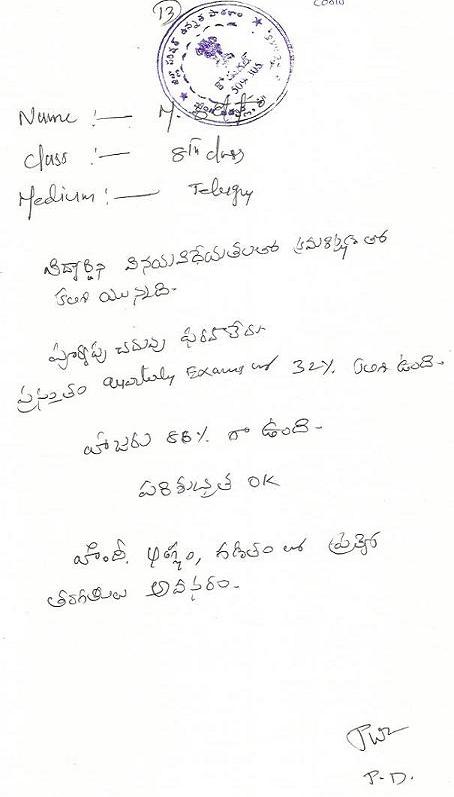 13
Name :— M.
Class :— 8th class
Medium :— Telugu
విద్యార్థిని వినయవిధేయతలతో క్రమశిక్షణతో
కలిగి యున్నది.
పూర్తపు చదువు ఫరవాలేదు
ప్రస్తుతం Quarterly Exams లో 32% కలిగి ఉంది.
హాజరు 88% గా ఉంది.
పరిశుభ్రత OK
హిందీ, ఇంగ్లీష్, గణితం లో ప్రత్యేక
తరగతులు అవసరం.
P.D.